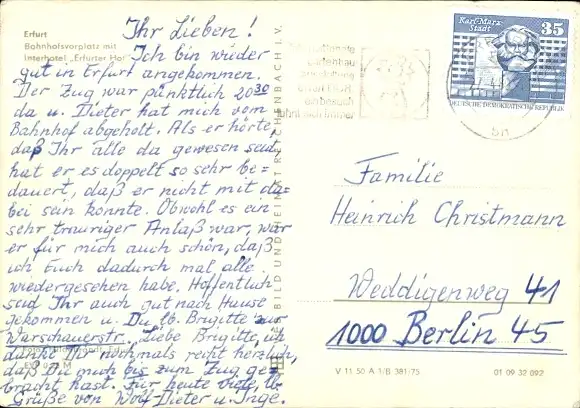 Erfurt
Bahnhofsvorplatz mit
Interhotel „Erfurter Hof"
Ihr Lieben!
Ich bin wieder
gut in Erfurt angekommen.
Der Zug war pünktlich 20³⁰
da u. Dieter hat mich vom
Bahnhof abgeholt. Als er hörte,
daß Ihr alle da gewesen seid,
hat er es doppelt so sehr be-
dauert, daß er nicht mit da-
bei sein konnte. Obwohl es ein
sehr trauriger Anlaß war, war
er für mich auch schön, daß
ich Euch dadurch mal alle
wiedergesehen habe. Hoffentlich
seid Ihr auch gut nach Hause
gekommen u. Du, lb. Brigitte zur
Warschauerstr. Liebe Brigitte, ich
danke Dir nochmals recht herzlich,
daß Du mich bis zum Zug ge-
bracht hast. Für heute viele, lb.
Grüße von Wolf-Dieter u. Inge.
BILD UND HEIMAT REICHENBACH I. V.
Karl-Marx-
Stadt
35
DEUTSCHE DEMOKRATISCHE REPUBLIK
Familie
Heinrich Christmann
Weddigenweg 41
1000 Berlin 45
V 11 50 A 1/B 381/75
01 09 32 092